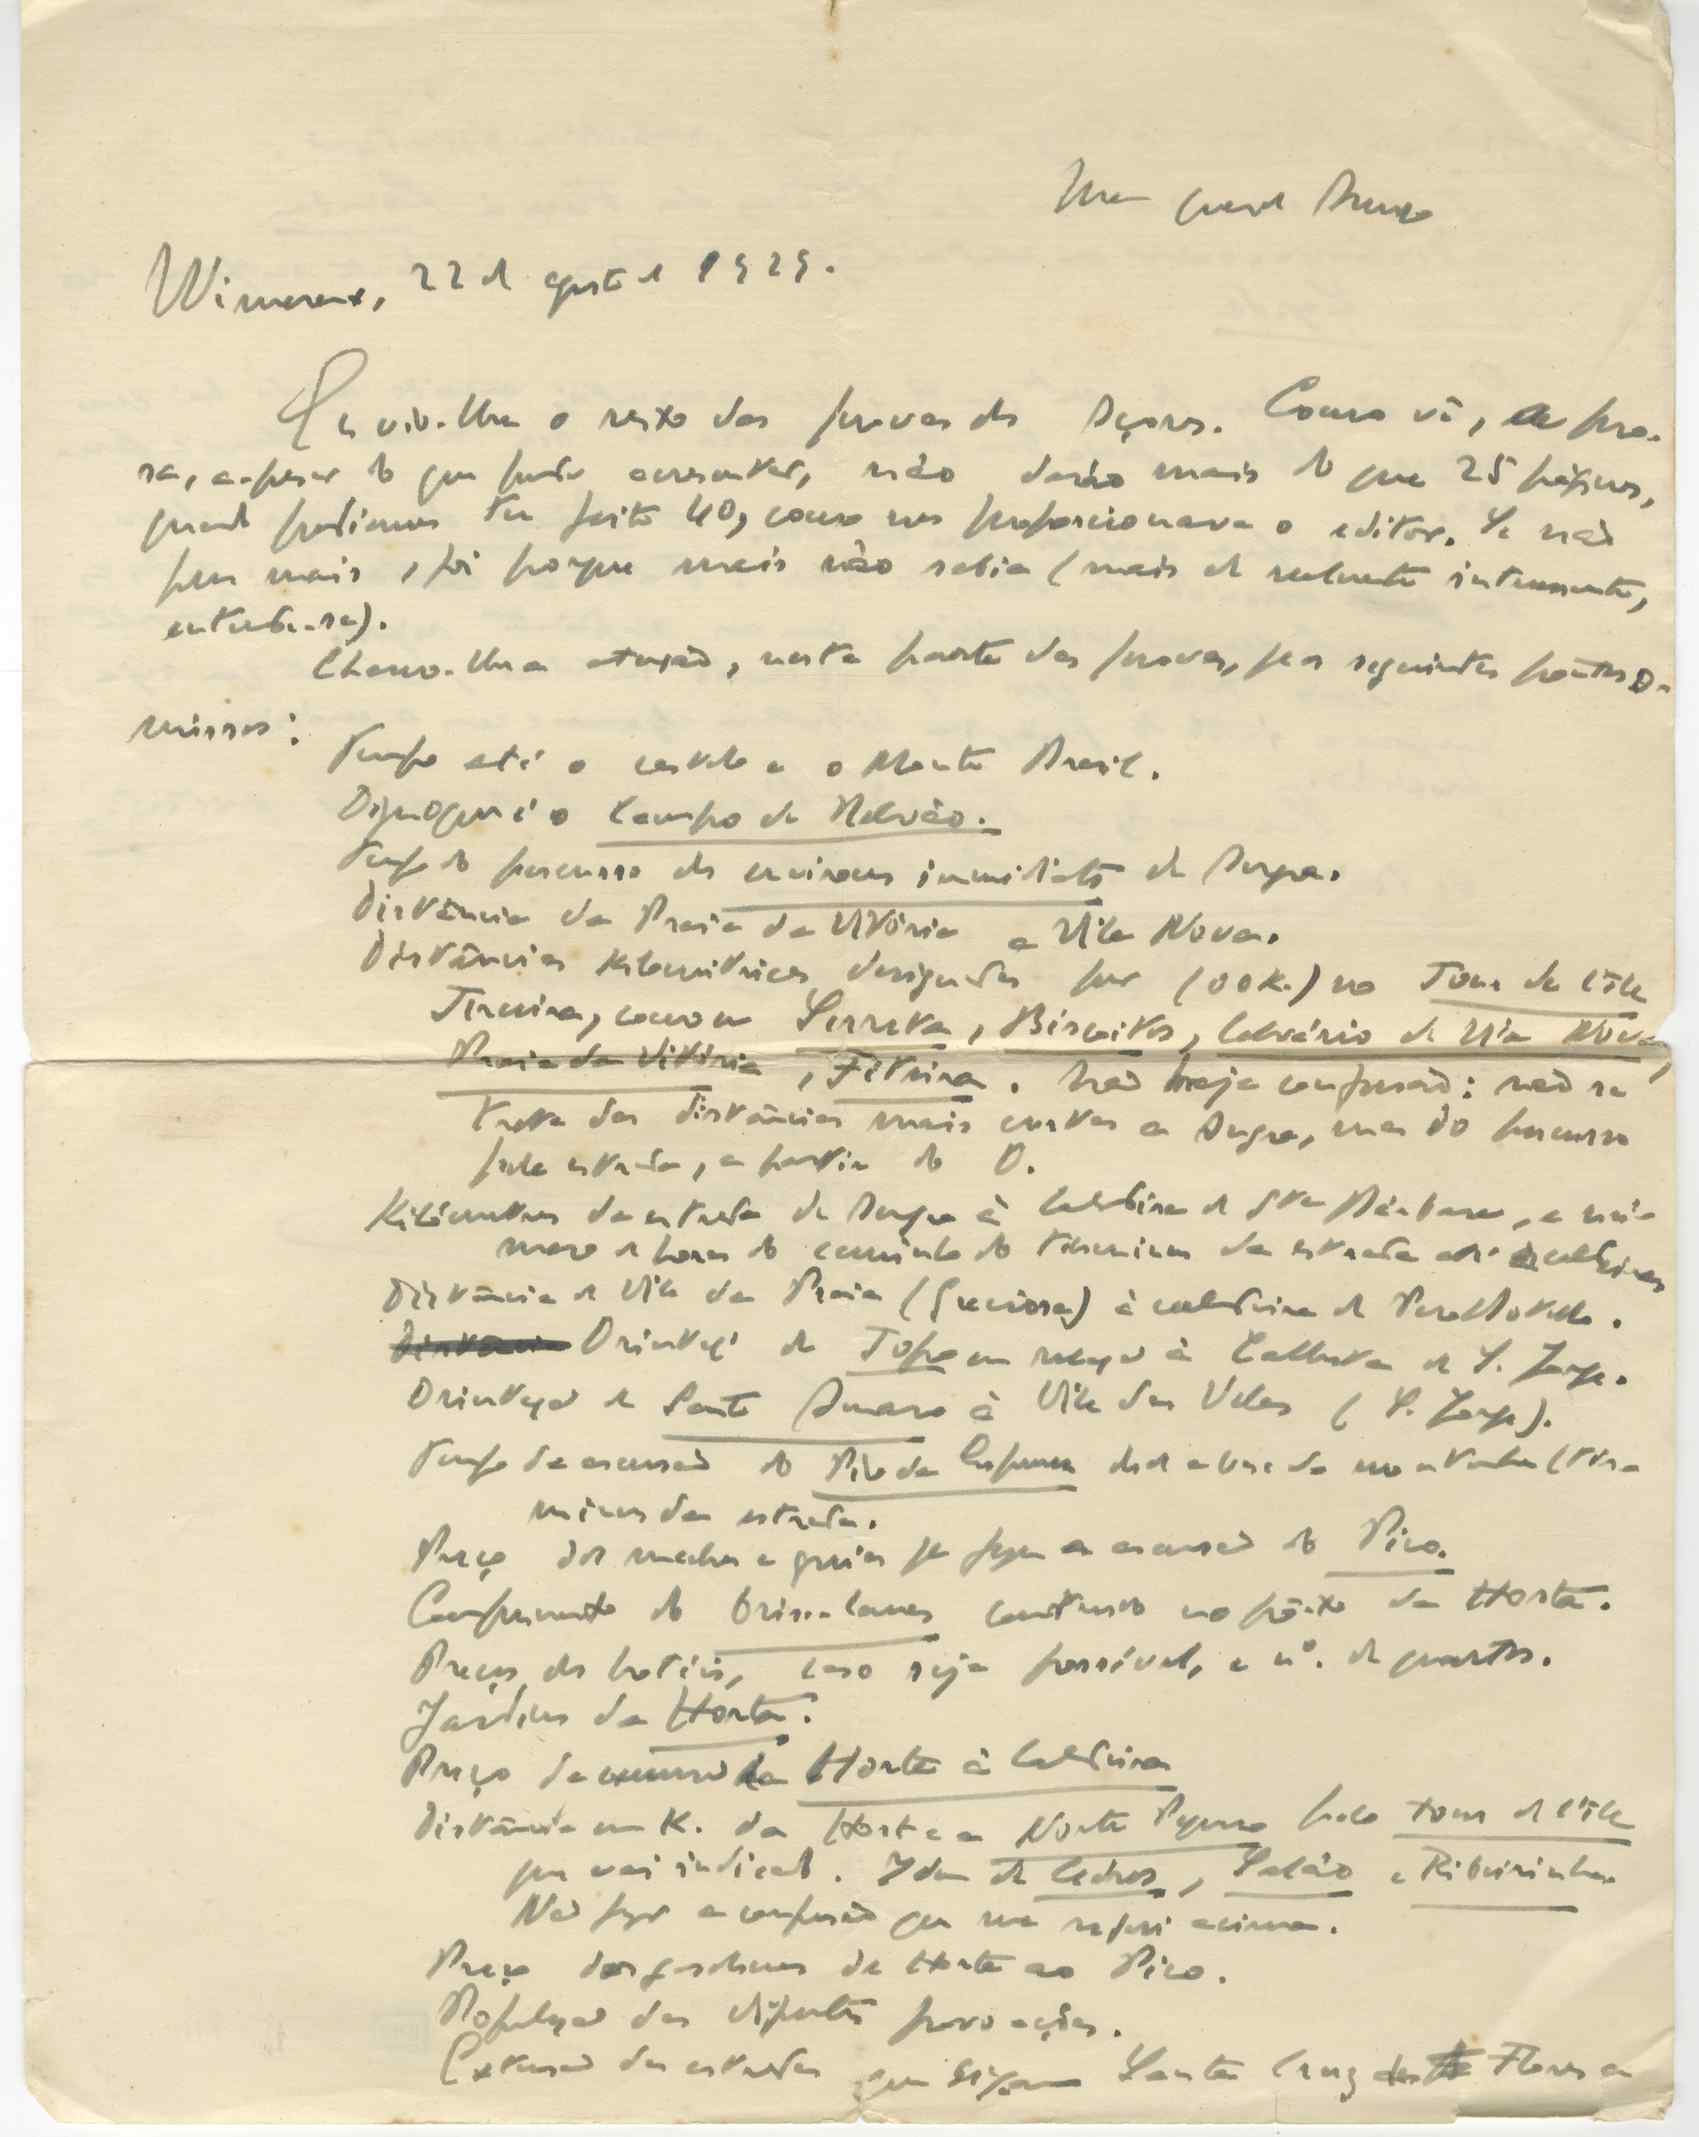 Meu querido Amigo
Wimereux, 22 de agosto de 1929.
Envio-lhe o resto das provas dos Açores. Como vê, a pro-
sa, apesar do que pude acrescentar, não darão mais do que 25 páginas,
quando podiamos ter feito 40, como nos proporcionava o editor. Se não
fui mais, foi porque mais não sabia (mais de realmente interessante,
entenda-se).
Chamo-lhe a atenção, nesta parte das provas, pra os seguintes pontos o-
missos:
Tempo até o castelo e o Monte Brasil.
Diga o que é o Campo de Relvão.
Tempo do percurso dos environs immédiats de Angra.
Distância da Praia da Vitória a Vila Nova.
Distâncias kilométricas designadas por (00 K.) no Tour de l'île
Terceira, como em Serreta, Biscoitos, Calvário de Vila Nova,
Praia da Vitória, Feteira. Não haja confusão: não se
trata das distâncias mais curtas a Angra, mas do percurso
pela estrada, a partir do O.
Kilómetros da estrada de Angra à Caldeira de Sta Bárbara, e nú-
mero de horas do caminho do términus da estrada até à caldeira
Distância de Vila da Praia (Graciosa) à caldeira de Pero Botelho.
Orientaçã de Topo em relação à Calheta de S. Jorge.
Orientação de Santo Amaro à Vila das Velas (S. Jorge).
Tempo da ascensão do Pico da Esperança desde a base da montanha (tér-
minus da estrada.
Preço dos machos e guias pra fazer a ascensão do Pico.
Comprimento do brise-lames construído no pôrto da Horta.
Preços dos hotéis, caso seja possível, e nº. de quartos.
Jardins da Horta.
Preço da excursão da Horta à Caldeira
Distância em K. da Horta a Norte Pequeno pelo tour de l'île
que vai indicado. Idem de Cedros, Salão e Ribeirinha.
Não faça a confusão que me referi acima.
Preço das gasolinas da Horta ao Pico.
Populaçao das diferentes povoações.
Extensão das estradas que ligam Santa Cruz das Flores a